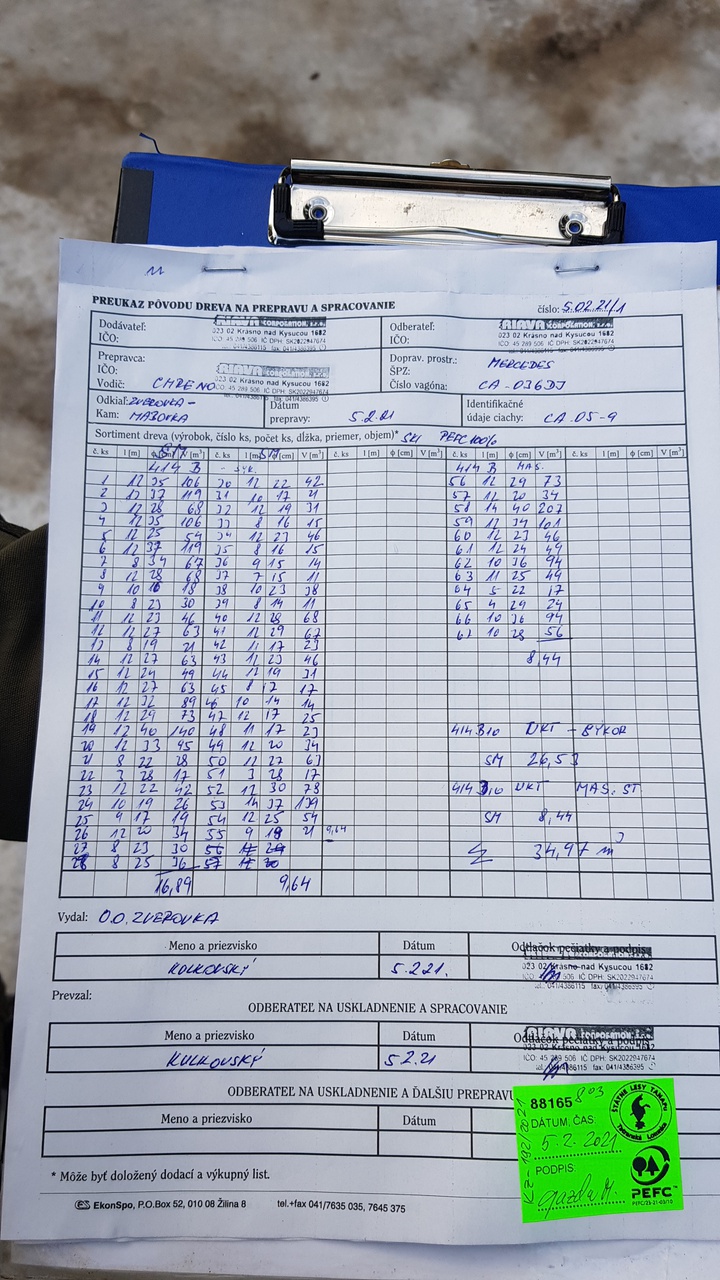 PREUKAZ PÔVODU DREVA NA PREPRAVU A SPRACOVANIE číslo: 5.02.21/1
Dodávateľ: RIAVA CORPORATION, s.r.o. Odberateľ: RIAVA CORPORATION, s.r.o.
023 02 Krásno nad Kysucou 1682 023 02 Krásno nad Kysucou 1682
IČO: IČO: 45 289 506 IČ DPH: SK2022947674 IČO: IČO: 45 289 506 IČ DPH: SK2022947674
Prepravca: RIAVA CORPORATION, s.r.o. Doprav. prostr.: MERCEDES
IČO: 023 02 Krásno nad Kysucou 1682 ŠPZ:
Vodič: IČO: 45 289 506 IČ DPH: SK2022947674 Číslo vagóna: CA-036DJ
Odkiaľ: ZVEROVKA- Dátum Identifikačné
Kam: prepravy: 5.2.21 údaje ciachy: CA.05-9
Sortiment dreva (výrobok, číslo ks, počet ks, dĺžka, priemer, objem)* PEFC 100%
č. ks l [m] ϕ [cm] V [m³] č. ks l [m] ϕ [cm] V [m³] č. ks l [m] ϕ [cm] V [m³] č. ks l [m] ϕ [cm] V [m³] č. ks l [m] ϕ [cm] V [m³]
414 B 414 B MAS.
1 12 35 106 30 12 22 42 56 12 29 73
2 12 37 119 31 10 17 21 57 12 20 34
3 12 28 68 32 12 19 31 58 14 40 207
4 12 35 106 33 8 16 15 59 12 34 101
5 12 25 54 34 12 23 46 60 12 23 46
6 12 37 119 35 8 16 15 61 12 24 49
7 8 34 67 36 9 15 14 62 10 36 94
8 12 28 68 37 7 15 11 63 11 25 49
9 10 16 18 38 10 23 38 64 5 22 17
10 8 23 30 39 8 14 11 65 4 29 24
11 12 23 46 40 12 28 68 66 10 36 94
12 12 27 63 41 12 29 67 10 28 56
13 8 19 21 42 11 17 23
14 12 27 63 43 12 23 46 8,44
15 12 24 49 44 12 19 31
16 12 27 63 45 8 17 17
17 12 32 89 46 10 14 14
18 12 29 73 47 12 17 25
19 12 40 140 48 11 17 23 414 B10 UKT - SÝKOR
20 12 33 95 49 12 20 34
21 8 22 28 50 12 27 63 SM 26,53
22 3 28 17 51 3 28 17
23 12 22 42 52 12 30 78 414 UKT MAS. ST
24 10 19 26 53 14 37 139
25 9 17 19 54 12 25 54 SM 8,44
26 12 20 34 55 9 18 21 9,64
27 8 23 30 56 12 29 34,97 m³
28 8 25 36 57 12 20
16,89 9,64
Vydal: O.O. ZVEROVKA
Meno a priezvisko Dátum Odtlačok pečiatky a podpis
KULKOVSKÝ 5.2.21. 023 02 Krásno nad Kysucou 1682
IČO: 45 289 506 IČ DPH: SK2022947674
Prevzal:
ODBERATEĽ NA USKLADNENIE A SPRACOVANIE
Meno a priezvisko Dátum Odtlačok pečiatky a podpis
KULKOVSKÝ 5.2.21 RIAVA CORPORATION, s.r.o.
023 02 Krásno nad Kysucou 1682
IČO: 45 289 506 IČ DPH: SK2022947674
ODBERATEĽ NA USKLADNENIE A ĎALŠIU PREPRAVU
Meno a priezvisko Dátum
88165 803
DÁTUM, ČAS:
5.2.2021
PODPIS:
ŠTÁTNE LESY TANAPU
Tatranská Lomnica
PEFC™
PEFC/23-21-03/10
* Môže byť doložený dodací a výkupný list.
EkonSpo, P.O.Box 52, 010 08 Žilina 8 tel.+fax 041/7635 035, 7645 375